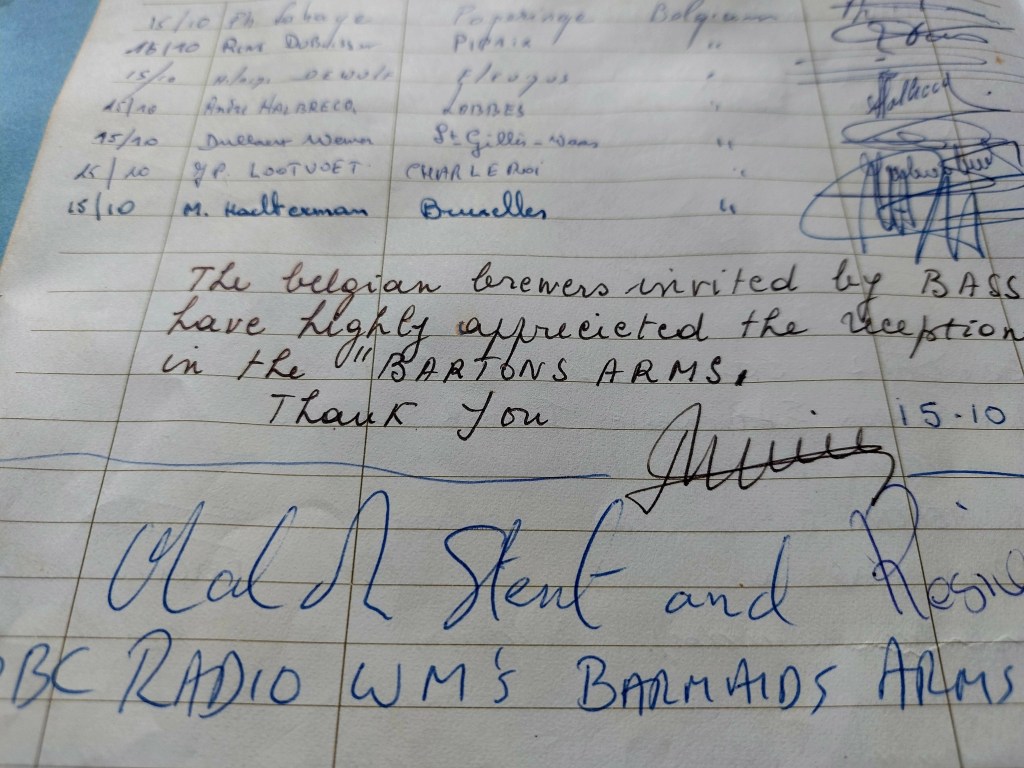 15/10 Ph Labaye Poperinge Belgium
16/10 René Dubuisson Pipaix "
15/10 DEWULF "
15/10 André HALBRECQ LOBBES "
15/10 Dullaert St Gillis-Waas "
15/10 J.P. LOOTVOET CHARLEROI "
15/10 M. Haelterman Bruxelles "
The belgian brewers invited by BASS
have highly apprecieted the reception
in the "BARTONS ARMS.
Thank You 15.10
Mal Stent and
BC RADIO WM's BARMAIDS ARMS